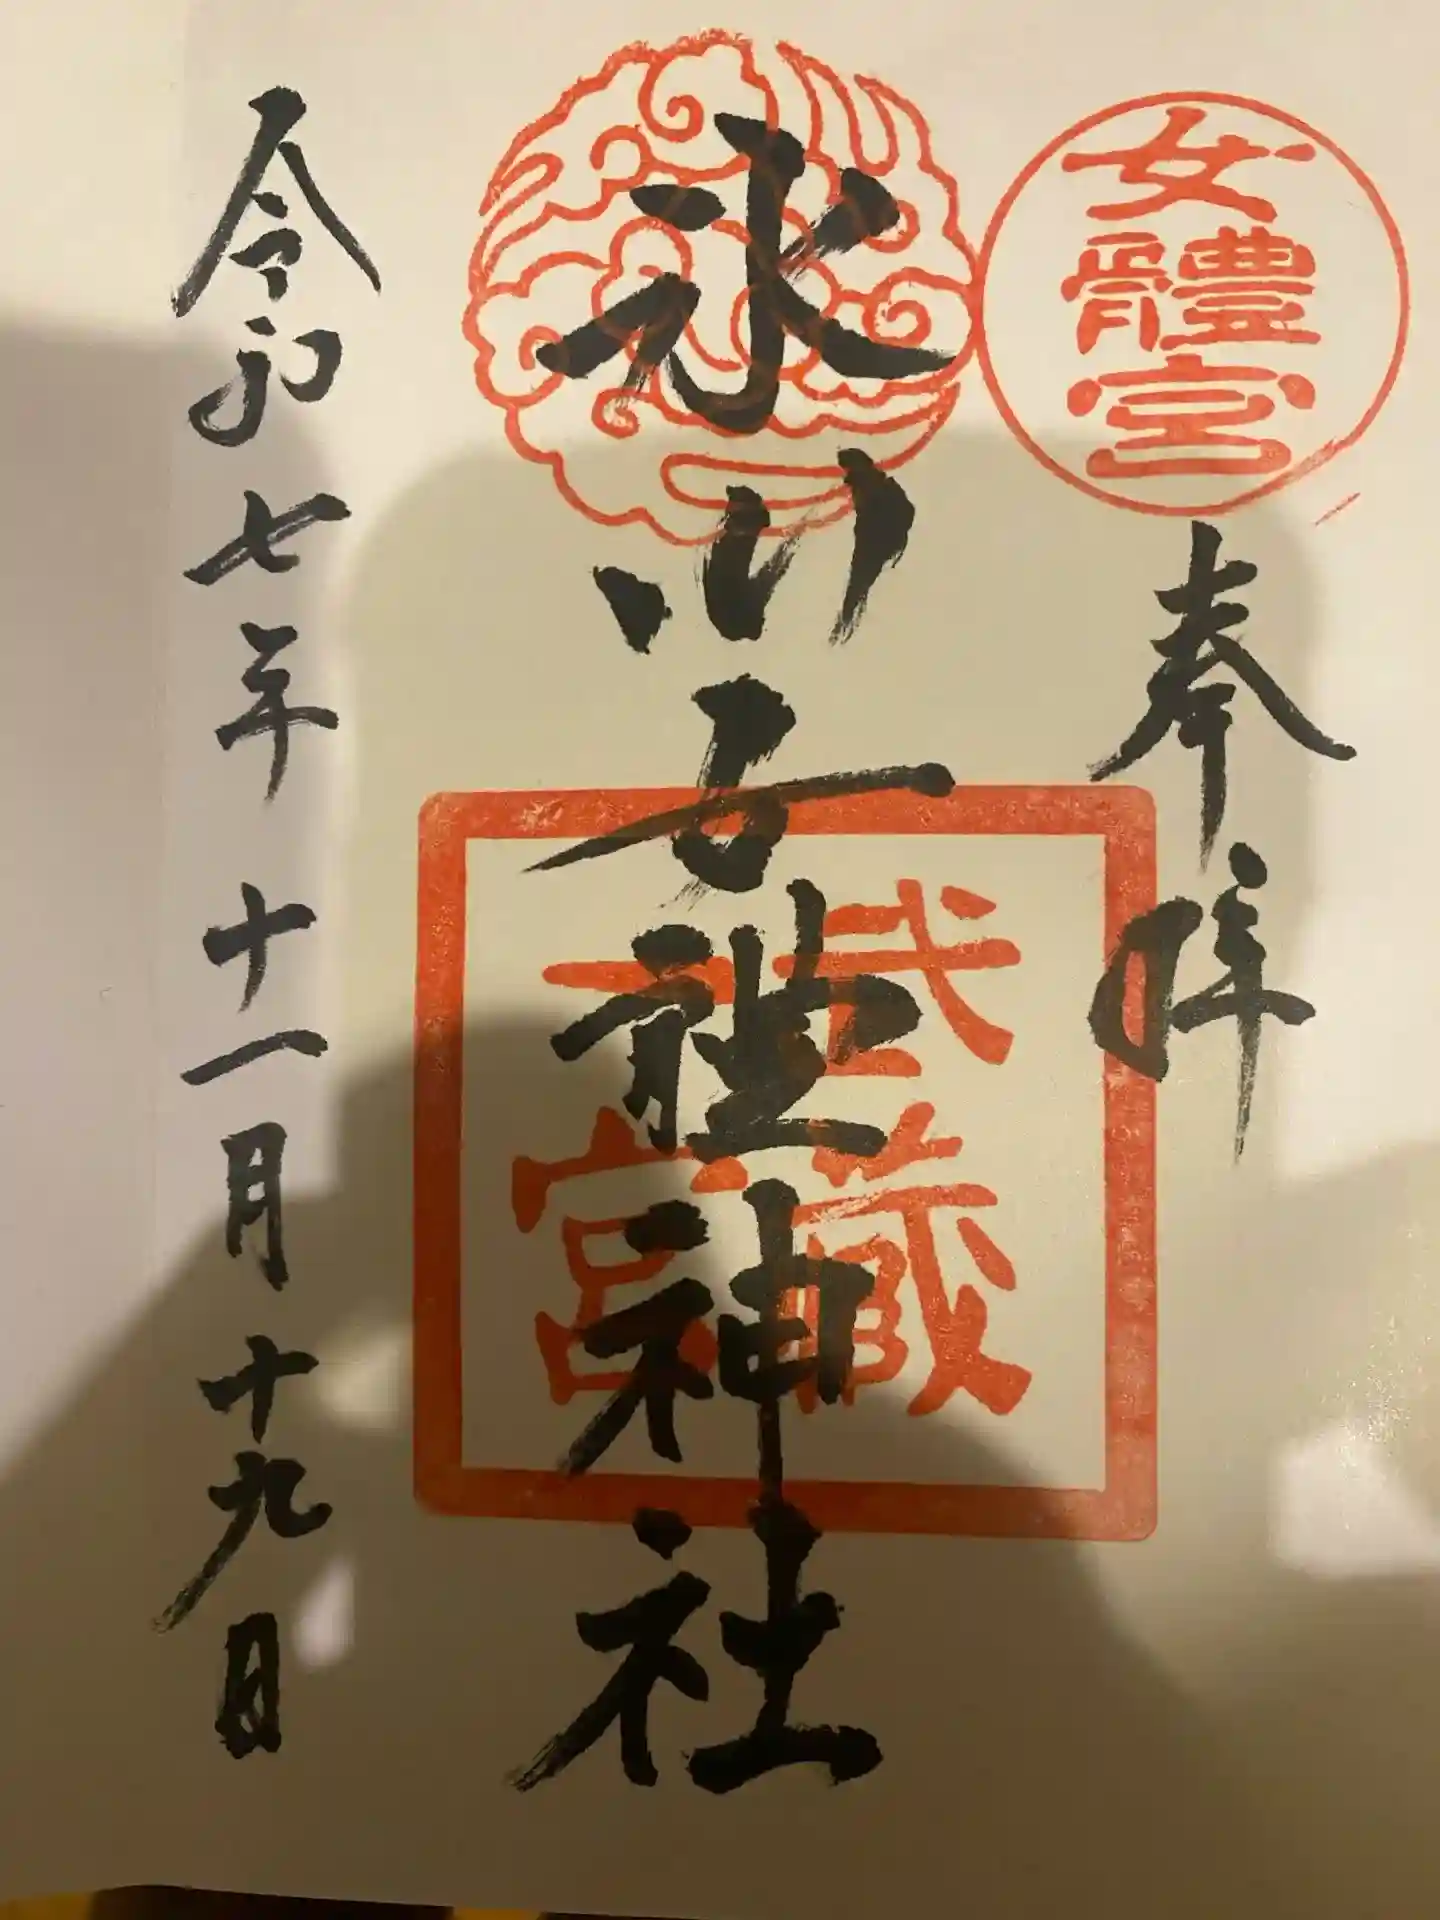 女體宮
奉拝
氷川女體神社
武藏
一宮
令和七年十一月十九日